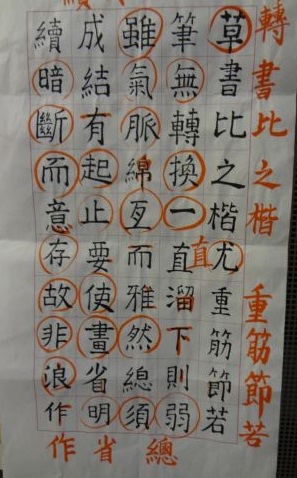 轉書比之楷
重筋節若
草書比之楷尤重筋節若
直
筆無轉換一直溜下則弱
雖氣脈綿亙而雅然總須
成結有起止要使畫省明
續暗斷而意存故非浪作
總省作